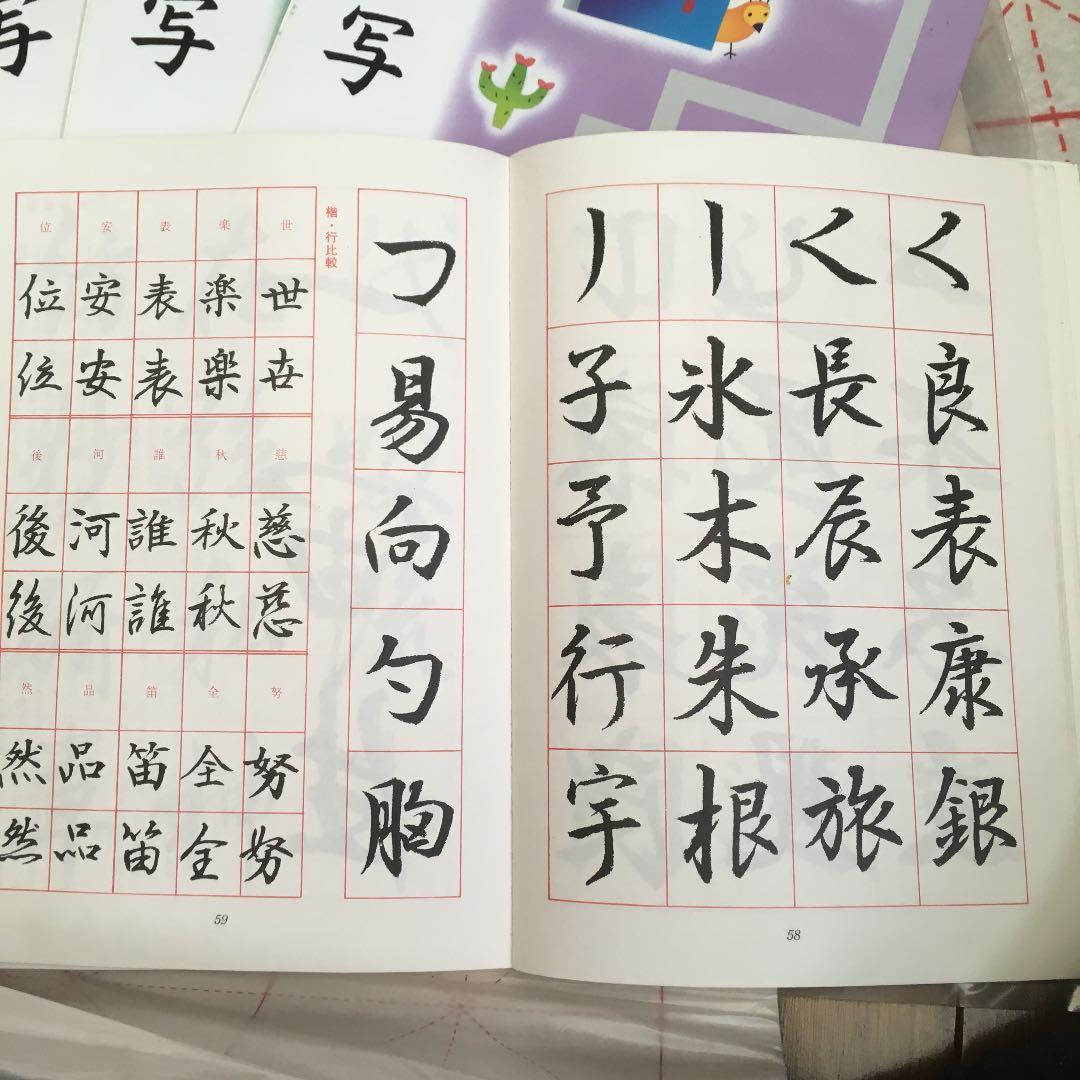 写
写
写
く良表康銀
く長辰承旅
丨氷木朱根
丿子予行宇
58
フ易向勺胸
楷・行比較
世世世
楽楽楽
表表表
安安安
位位位
慈慈慈
秋秋秋
誰誰誰
河河河
後後後
努努努
全全全
笛笛笛
品品品
然然然
59